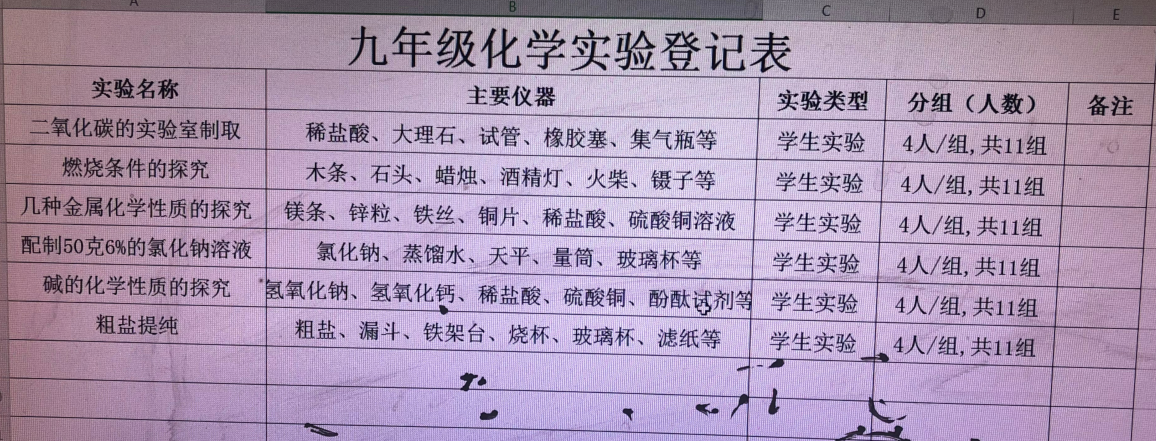 A B C D E
九年级化学实验登记表
实验名称 主要仪器 实验类型 分组（人数） 备注
二氧化碳的实验室制取 稀盐酸、大理石、试管、橡胶塞、集气瓶等 学生实验 4人/组,共11组
燃烧条件的探究 木条、石头、蜡烛、酒精灯、火柴、镊子等 学生实验 4人/组,共11组
几种金属化学性质的探究 镁条、锌粒、铁丝、铜片、稀盐酸、硫酸铜溶液 学生实验 4人/组,共11组
配制50克6%的氯化钠溶液 氯化钠、蒸馏水、天平、量筒、玻璃杯等 学生实验 4人/组,共11组
碱的化学性质的探究 氢氧化钠、氢氧化钙、稀盐酸、硫酸铜、酚酞试剂等 学生实验 4人/组,共11组
粗盐提纯 粗盐、漏斗、铁架台、烧杯、玻璃杯、滤纸等 学生实验 4人/组,共11组